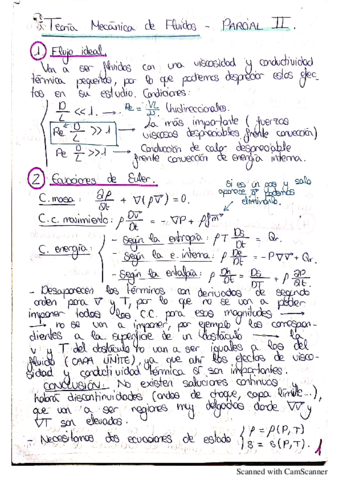 Teoría Mecánica de Fluidos - PARCIAL II.
1) Flujo ideal.
Van a ser fluidos con una viscosidad y conductividad
térmica pequeñas, por lo que podremos despreciar estos efec-
tos en su estudio. Condiciones:
D/L << 1. → Re = VL/ν Unidireccionales.
Re D/L >> 1 → La más importante (fuerzas
viscosas despreciables frente convección)
Pe D/L >> 1 → Conducción de calor despreciable
frente convección de energía interna.
2) Ecuaciones de Euler.
C. masa: ∂ρ/∂t + ∇(ρ v̄) = 0.
Si es un gas y solo
aparece
eliminarlo.
C. c. movimiento: ρ Dv̄/Dt = -∇P + ρ f̄m
C. energía:
- Según la entropía: ρT Ds/Dt = Qr.
- Según la e. interna: ρ De/Dt = -P∇v̄ + Qr.
- Según la entalpía:
- Desaparecen los términos con derivadas de segundo
orden para v̄ y T, por lo que no se van a poder
imponer todas las C.C. para esas magnitudes →
→ no se van a imponer, por ejemplo las correspon-
dientes a la superficie de un obstáculo → La
v y T del obstáculo no van a ser iguales a las del
fluido (CAPA LÍMITE), ya que ahí los efectos de visco-
sidad y conductividad térmica sí son importantes.
CONCLUSIÓN: No existen soluciones continuas y
habrá discontinuidades (ondas de choque, capa límite...),
que van a ser regiones muy delgadas donde ∇v̄ y
∇T son elevados.
- Necesitamos dos ecuaciones de estado { ρ = ρ(P,T).
s = s(P,T).
1
Scanned with CamScanner